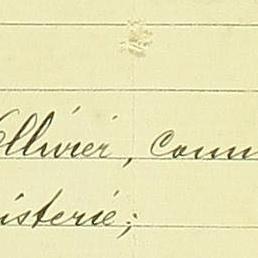 Ollivier, comm
isterie;